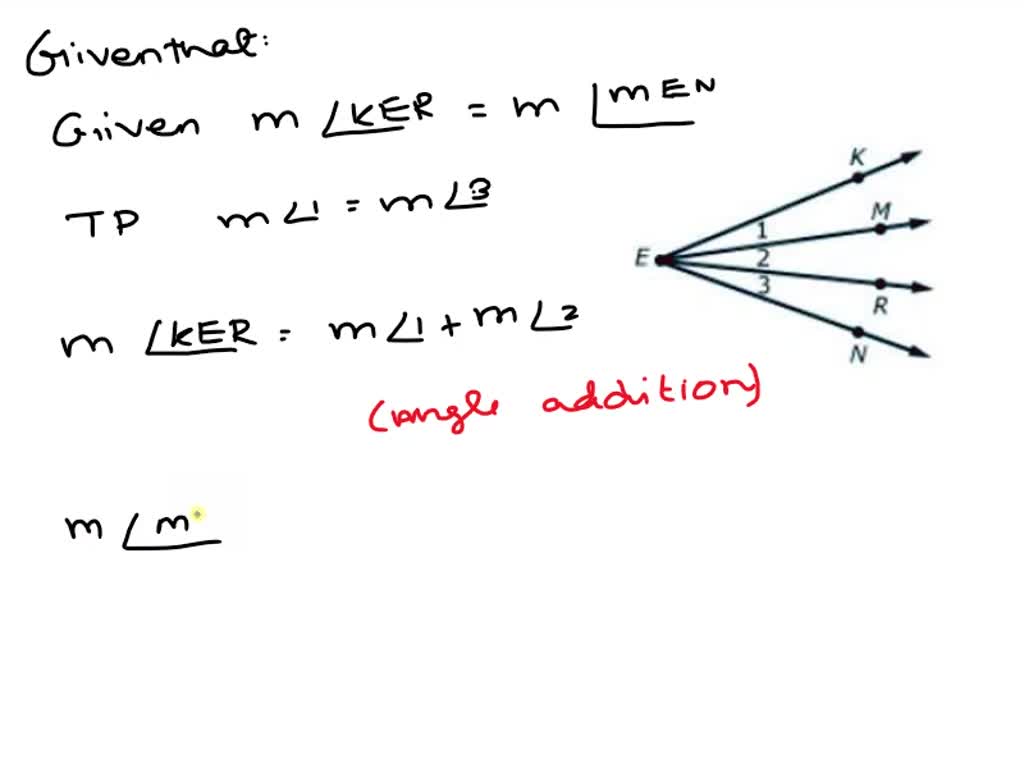 Giiventhat:
Giiven m ∠KER = m ∠mEN
TP m∠1 = m∠3
m ∠KER = m∠1 + m∠2
(angle addition)
m ∠m
K
M
1
E
2
3
R
N